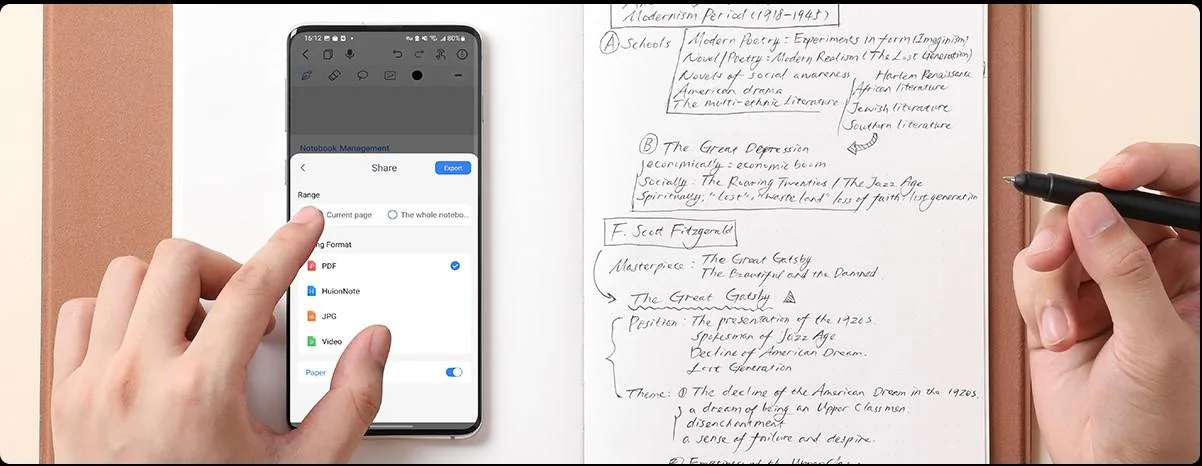 16:12
80%
Notebook Management
Share
Export
Range
Current page
The whole notebo...
ng Format
PDF
HuionNote
JPG
Video
Paper
Modernism Period (1918-1945)
Ⓐ Schools
Modern Poetry: Experiments in form (Imaginism)
Novel/Poetry: Modern Realism (The Lost Generation)
Novels of social awareness
American drama
The multi-ethnic Literature
Harlem Renaissance
African literature
Jewish literature
Southern literature
Ⓑ The Great Depression
economically: economic boom
Socially: The Roaring Twenties / The Jazz Age
Spiritually: "Lost", "waste land" loss of faith: lost generation
F. Scott Fitzgerald
Masterpiece: The Great Gatsby
The Beautiful and the Damned
The Great Gatsby
Position: The presentation of the 1920s.
spokesman of Jazz Age
Decline of American Dream.
Lost Generation
Theme: ① The decline of the American Dream in the 1920s.
a dream of being an Upper Classman.
disenchantment
a sense of failure and despire.